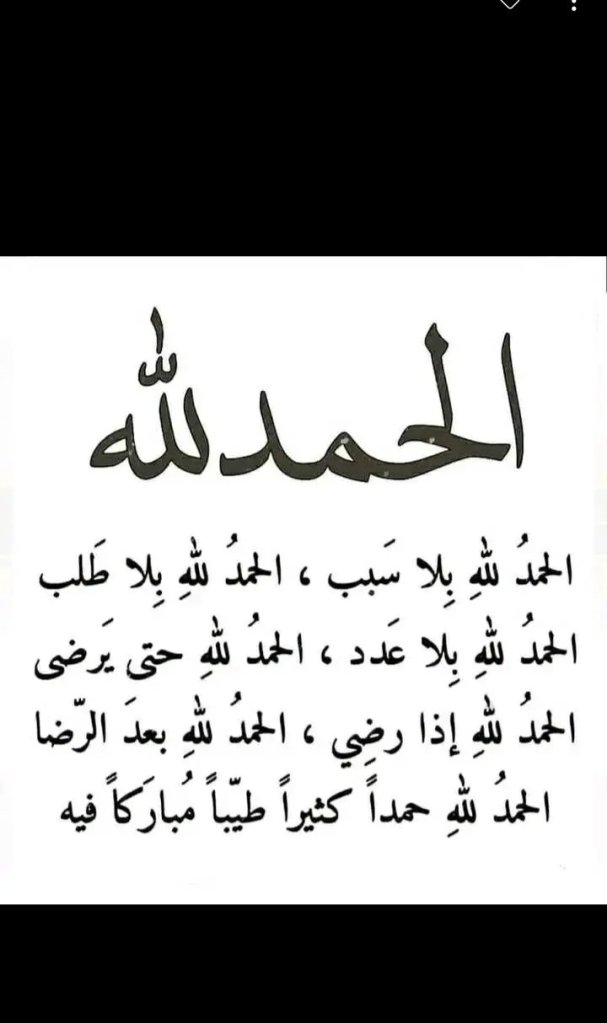 الحمدلله
الحمدُ للهِ بِلا سَبب ، الحمدُ للهِ بِلا طَلب
الحمدُ للهِ بِلا عَدد ، الحمدُ للهِ حتى يَرضى
الحمدُ للهِ إذا رضِي ، الحمدُ للهِ بعدَ الرّضا
الحمدُ للهِ حمداً كثيراً طيّباً مُبارَكاً فيه